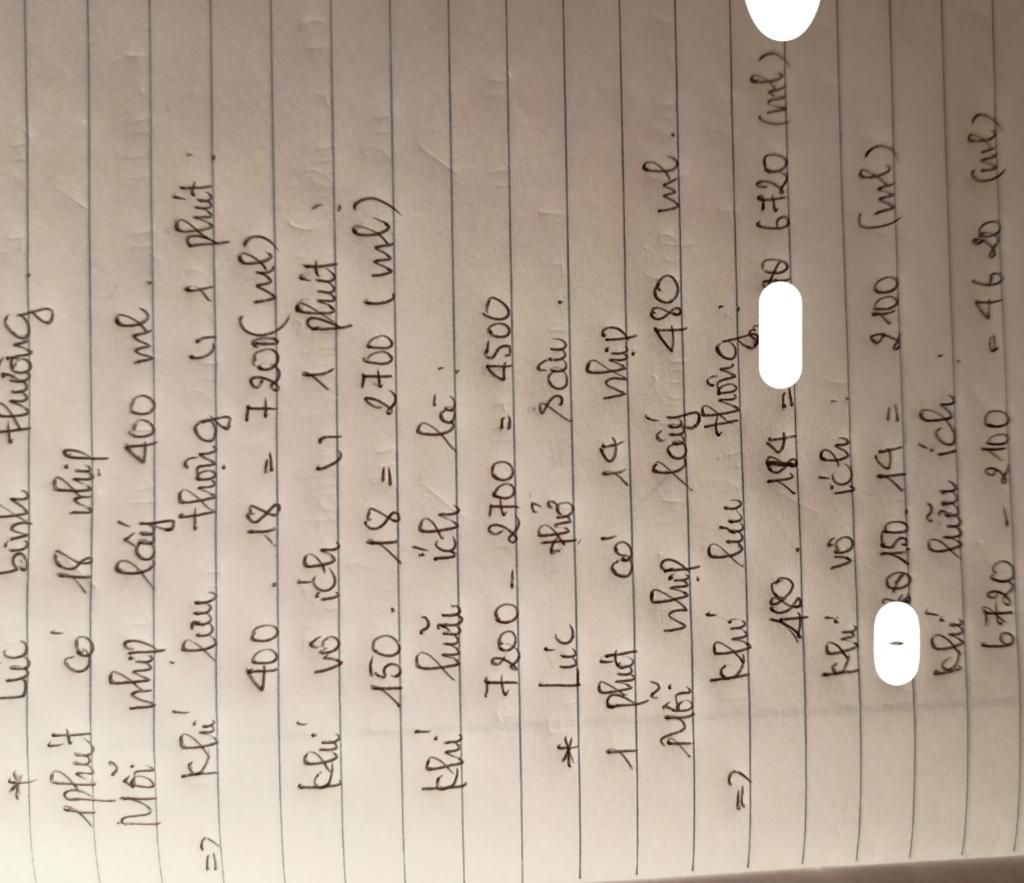 * Lúc bình thường
1 phút có 18 nhịp
Mỗi nhịp lấy 400 ml.
=> Khí lưu thông 1 phút.
400 . 18 = 7200 (ml)
Khí vô ích 1 phút:
150 . 18 = 2700 (ml)
Khí hữu ích là:
7200 - 2700 = 4500
* Lúc thở sâu.
1 phút có 14 nhịp
Mỗi nhịp lấy 480 ml.
=> Khí lưu thông:
480 . 14 = 6720 (ml)
Khí vô ích:
150 . 14 = 2100 (ml)
Khí hữu ích:
6720 - 2100 = 4620 (ml)